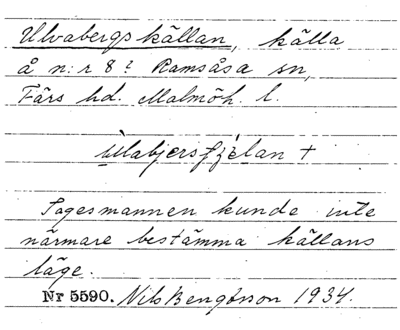 Ulvabergskällan, källa
å n:r 8? Ramsåsa sn,
Färs hd. Malmöh. l.
Sagesmannen kunde inte
närmare bestämma källans
läge.
Nr 5590. Nils Bengtsson 1934.